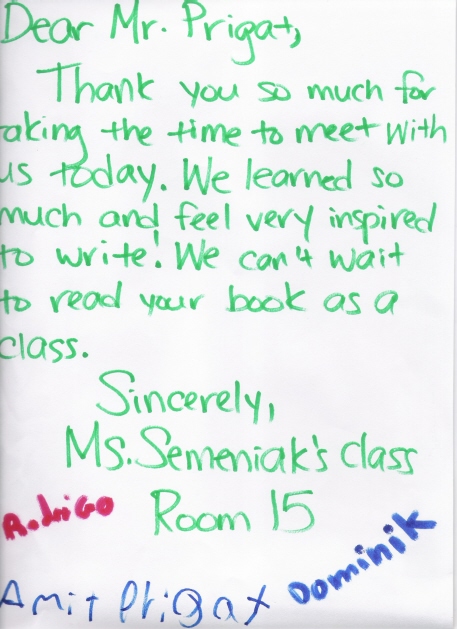 Dear Mr. Prigat,
Thank you so much for
aking the time to meet with
us today. We learned so
much and feel very inspired
to write! We can't wait
to read your book as a
class.
Sincerely,
Ms. Semeniak's class
Room 15
Rodrigo
Dominik
Amit Prigat